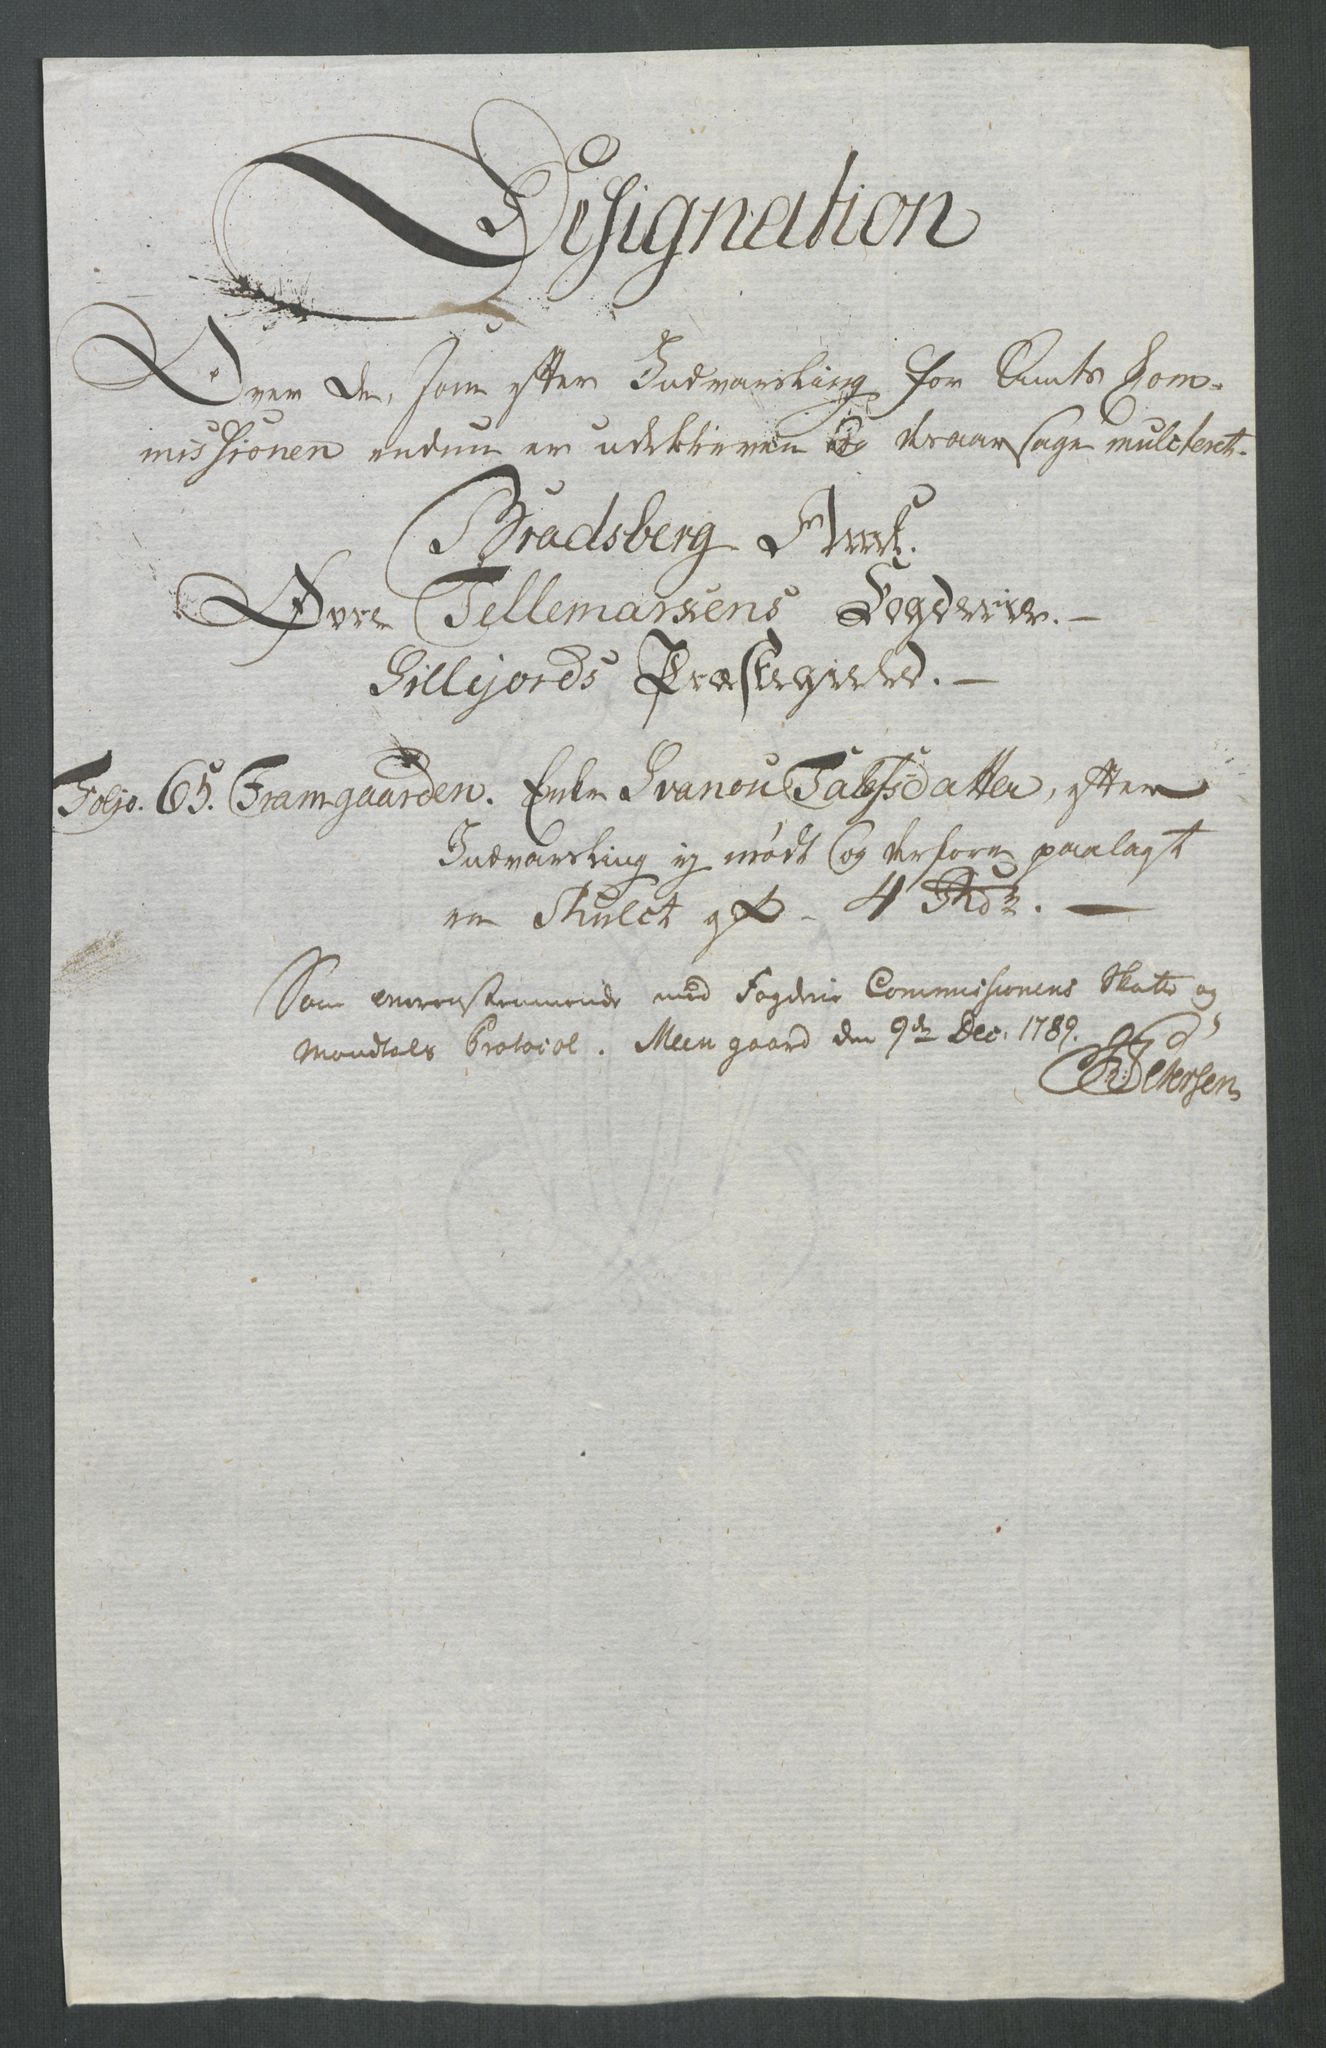 Designation
Over de, som efter Indvarsling for Amts Com-
missionen endnu er udebleven og desaarsage mulcteret.
Bradsberg Amt.
Øvre Tellemarkens Fogderie. –
Sillejords Præstegield. –
Foljo. 65. Framgaarden. Enke Svanou Talefsdatter, efter
Indvarsling ej mødt og derfore paalagt
en Mulct af – 4 Rdr. –
Som overenstemmende med Fogderie Commissionens Skatte og
Mandtals Protocol. Meen gaard den 9de Dec. 1789.
Petersen